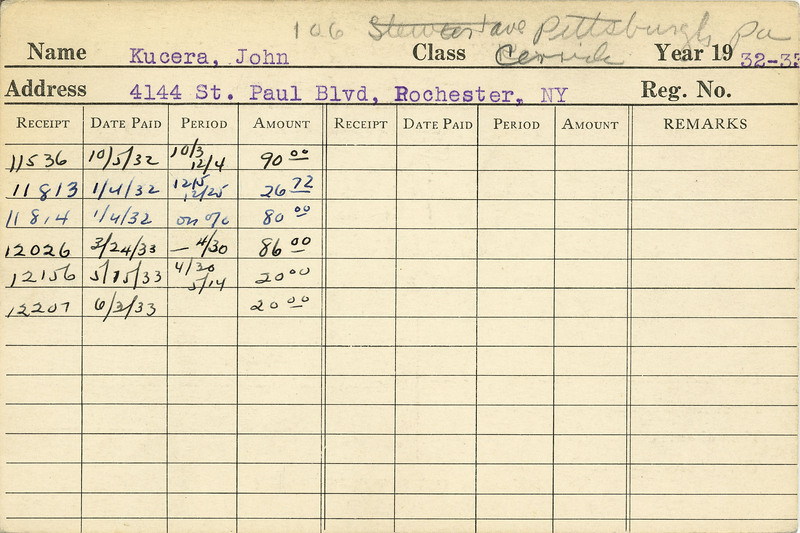 106 Stewart ave Pittsburgh Pa
Name Kucera, John Class Carrick Year 19 32-33
Address 4144 St. Paul Blvd, Rochester, NY Reg. No.
RECEIPT DATE PAID PERIOD AMOUNT RECEIPT DATE PAID PERIOD AMOUNT REMARKS
11536 10/5/32 10/3 12/4 90 00
11813 1/4/32 12/5 12/25 26 72
11814 1/4/32 on % 80 00
12026 3/24/33 — 4/30 86 00
12156 5/15/33 4/30 5/14 20 00
12207 6/2/33 20 00